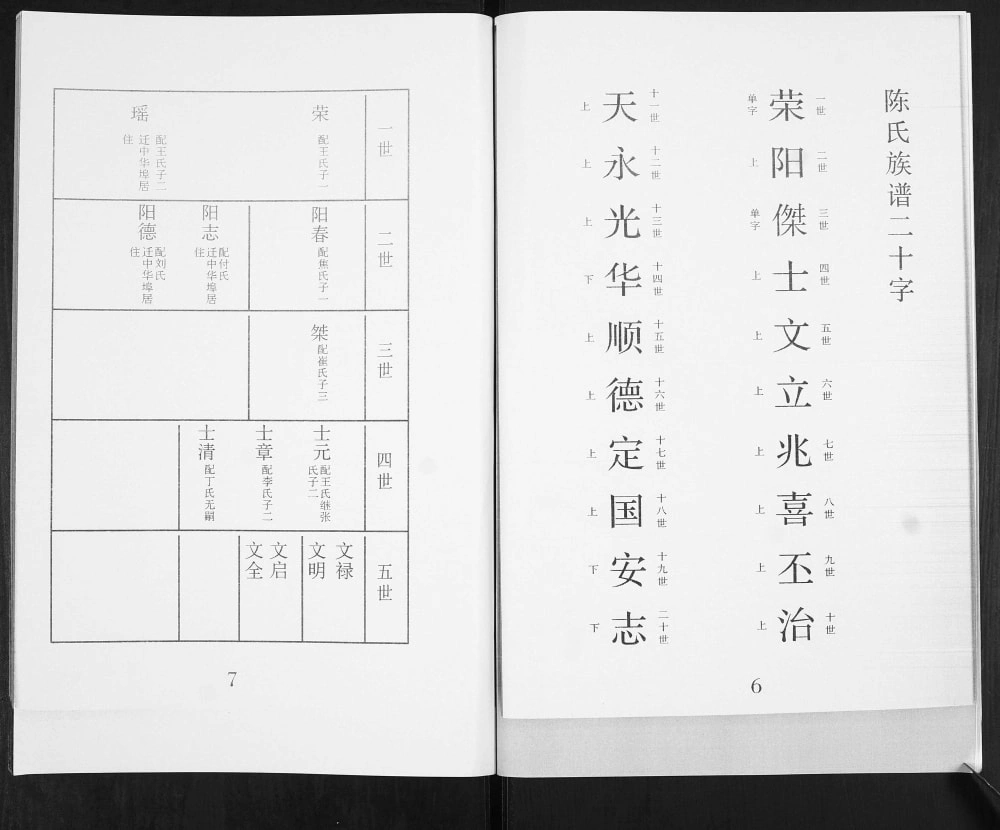 陈氏族谱二十字
一世 荣 单字
二世 阳 上
三世 傑 单字
四世 士 上
五世 文 上
六世 立 上
七世 兆 上
八世 喜 上
九世 丕 上
十世 治 上
十一世 天 上
十二世 永 上
十三世 光 上
十四世 华 下
十五世 顺 上
十六世 德 上
十七世 定 上
十八世 国 上
十九世 安 下
二十世 志 下
6
一世
荣 配王氏子一
瑶 配王氏子二
迁中华埠居
住
二世
阳春 配焦氏子一
阳志 配付氏
迁中华埠居
住
阳德 配刘氏
迁中华埠居
住
三世
桀 配崔氏子三
四世
士元 配王氏继张
氏子二
士章 配李氏子二
士清 配丁氏无嗣
五世
文禄
文明
文启
文全
7